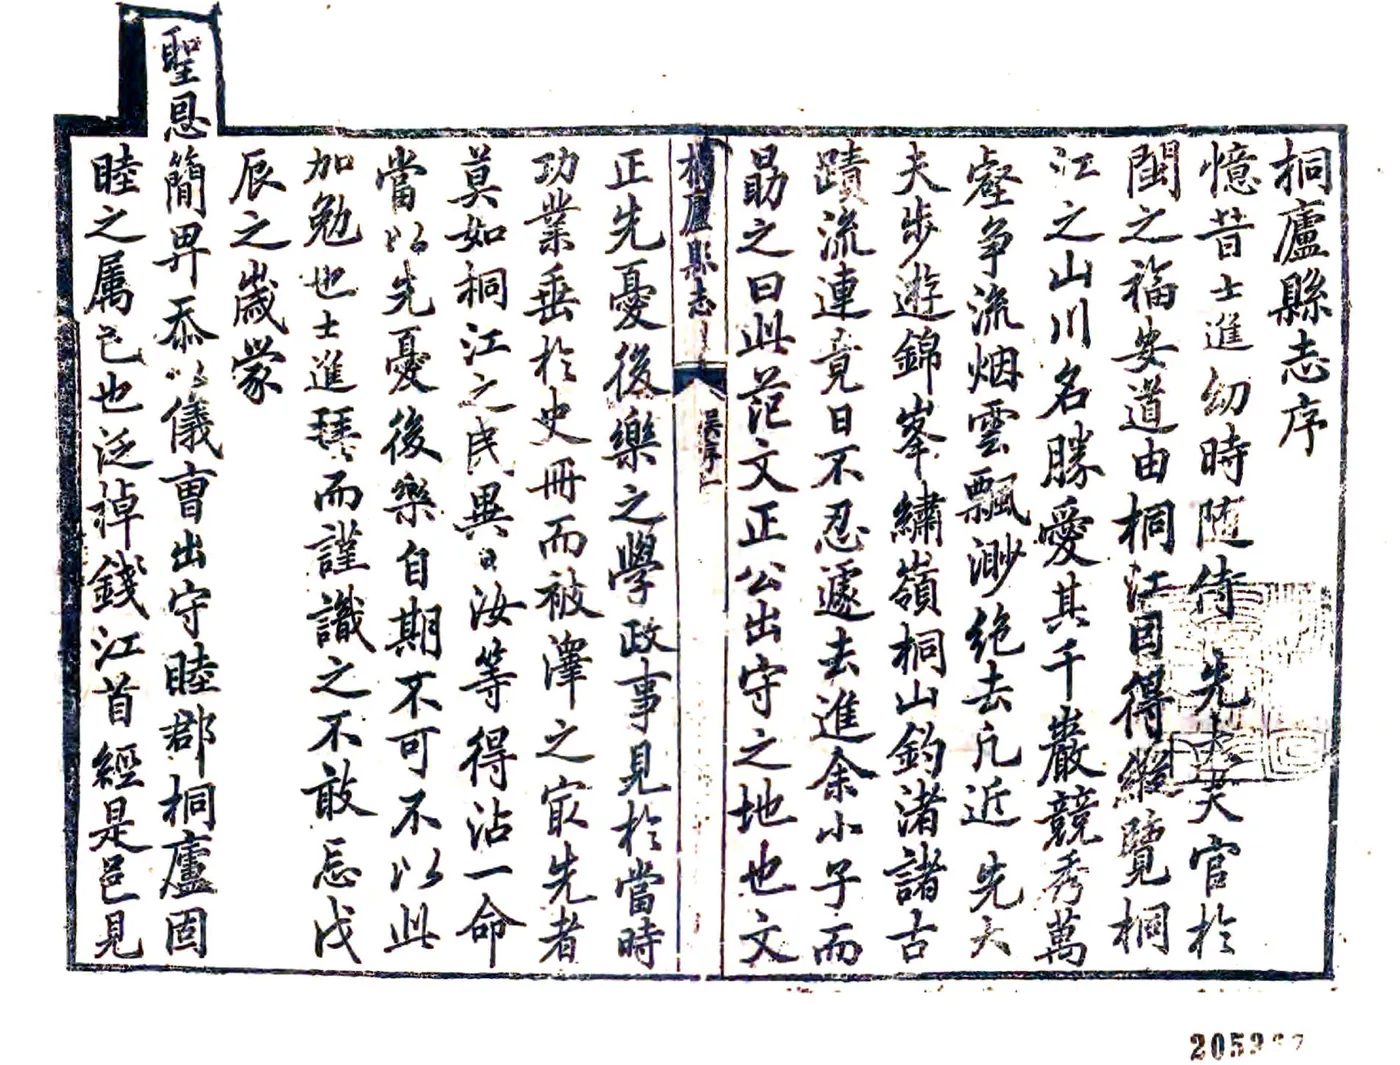 桐廬縣志序
憶昔士進幼時随侍　先大夫官於
閩之福安道由桐江因得縱覽桐
江之山川名勝愛其千巖競秀萬
壑争流烟雲飄渺绝去凡近　先大
夫步遊錦峯繡嶺桐山釣渚諸古
蹟流連竟日不忍遽去進余小子而
勗之曰此范文正公出守之地也文
桐廬縣志
吴序一
正先憂後樂之學政事見於當時
功業垂於史冊而被澤之㝡先者
莫如桐江之民異日汝等得沾一命
當以先憂後樂自期不可不以此
加勉也士進拜而謹識之不敢忘戊
辰之歲蒙
聖恩簡畀忝以儀曺出守睦郡桐廬固
睦之属邑也泛棹錢江首經是邑見